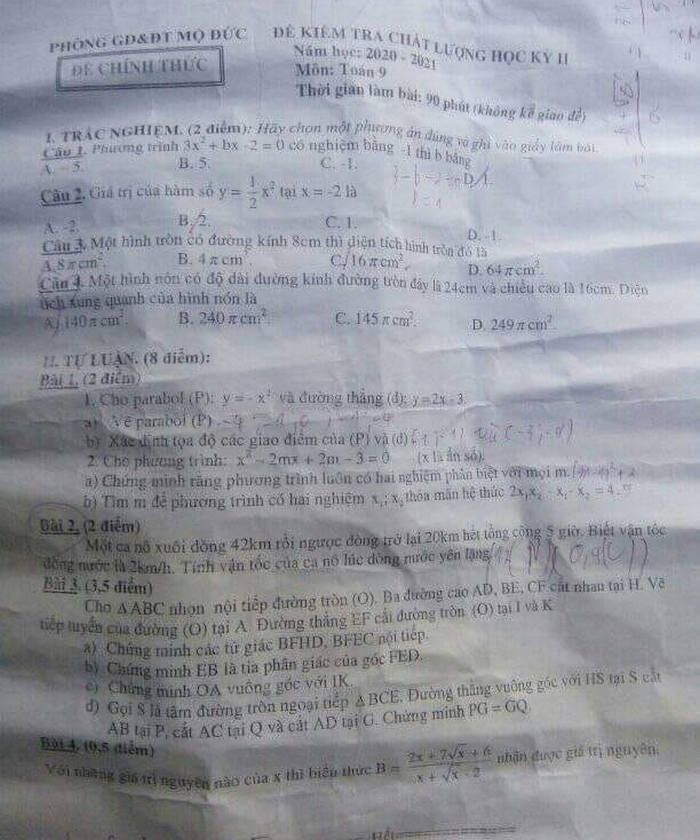 PHÒNG GD&ĐT MỘ ĐỨC
ĐỀ CHÍNH THỨC
ĐỀ KIỂM TRA CHẤT LƯỢNG HỌC KỲ II
Năm học: 2020 - 2021
Môn: Toán 9
Thời gian làm bài: 90 phút (không kể giao đề)
I. TRẮC NGHIỆM. (2 điểm): Hãy chọn một phương án đúng và ghi vào giấy làm bài.
Câu 1. Phương trình 3x² + bx - 2 = 0 có nghiệm bằng -1 thì b bằng
A. - 5. B. 5. C. -1. D. 1.
Câu 2. Giá trị của hàm số y = 1/2 x² tại x = -2 là
A. -2. B. 2. C. 1. D. -1.
Câu 3. Một hình tròn có đường kính 8cm thì diện tích hình tròn đó là
A. 8π cm². B. 4π cm². C. 16π cm². D. 64π cm².
Câu 4. Một hình nón có độ dài đường kính đường tròn đáy là 24cm và chiều cao là 16cm. Diện
tích xung quanh của hình nón là
A. 140π cm². B. 240π cm². C. 145π cm². D. 249π cm².
II. TỰ LUẬN. (8 điểm):
Bài 1. (2 điểm)
1. Cho parabol (P): y = - x² và đường thẳng (d): y = 2x - 3.
a) Vẽ parabol (P)
b) Xác định tọa độ các giao điểm của (P) và (d)
2. Cho phương trình: x² - 2mx + 2m - 3 = 0 (x là ẩn số).
a) Chứng minh rằng phương trình luôn có hai nghiệm phân biệt với mọi m.
b) Tìm m để phương trình có hai nghiệm x₁; x₂ thỏa mãn hệ thức 2x₁x₂ - x₁ - x₂ = 4.
Bài 2. (2 điểm)
Một ca nô xuôi dòng 42km rồi ngược dòng trở lại 20km hết tổng cộng 5 giờ. Biết vận tốc
dòng nước là 2km/h. Tính vận tốc của ca nô lúc dòng nước yên lặng
Bài 3. (3,5 điểm)
Cho ΔABC nhọn nội tiếp đường tròn (O). Ba đường cao AD, BE, CF cắt nhau tại H. Vẽ
tiếp tuyến của đường (O) tại A. Đường thẳng EF cắt đường tròn (O) tại I và K
a) Chứng minh các tứ giác BFHD, BFEC nội tiếp.
b) Chứng minh EB là tia phân giác của góc FED.
c) Chứng minh OA vuông góc với IK.
d) Gọi S là tâm đường tròn ngoại tiếp ΔBCE. Đường thẳng vuông góc với HS tại S cắt
AB tại P, cắt AC tại Q và cắt AD tại G. Chứng minh PG = GQ.
Bài 4. (0,5 điểm)
Với những giá trị nguyên nào của x thì biểu thức B = (2x + 7√x + 6)/(x + √x - 2) nhận được giá trị nguyên.
Hết